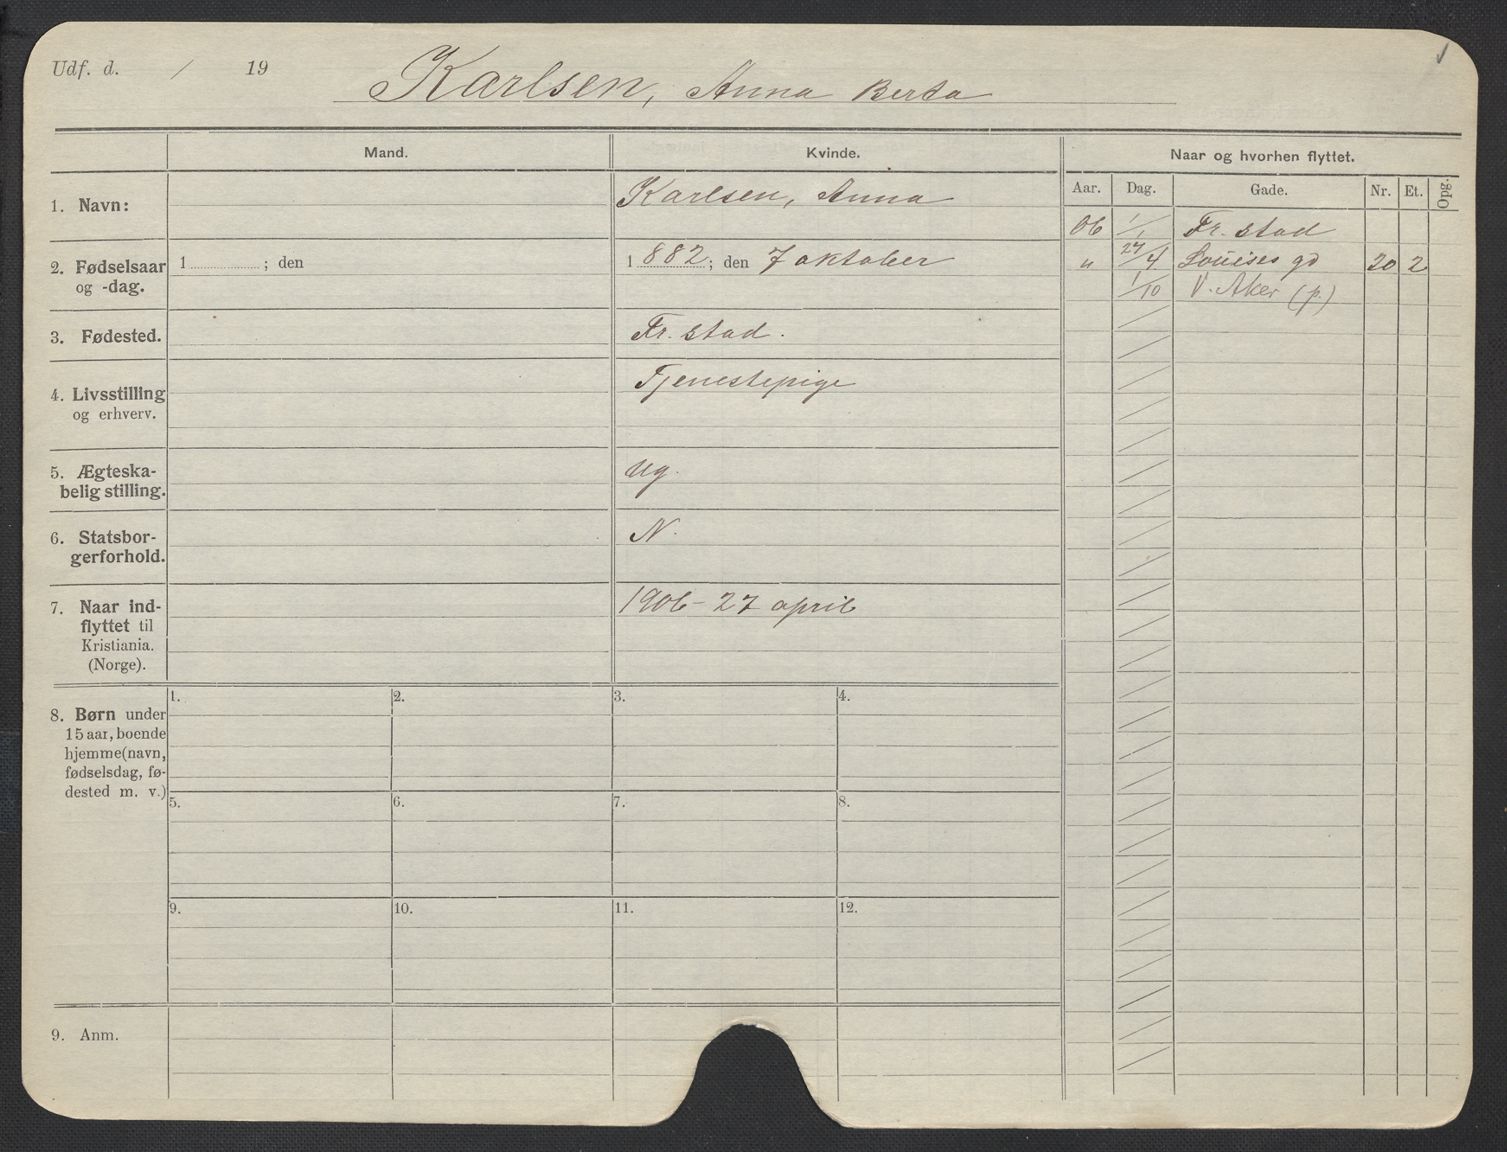 Udf. d. / 19
Karlsen, Anna Berta
Mand.
Kvinde.
Naar og hvorhen flyttet.
Aar. Dag. Gade. Nr. Et. Opg.
1. Navn:
Karlsen, Anna
06 1/1 Fr. stad
2. Fødselsaar
og -dag.
1 ; den
1 882 ; den 7 oktober
" 27/4 Louises gd 20 2
1/10 V. Aker (p.)
3. Fødested.
Fr. stad.
4. Livsstilling
og erhverv.
Tjenestepige
5. Ægteska-
belig stilling.
ug.
6. Statsbor-
gerforhold.
N.
7. Naar ind-
flyttet til
Kristiania.
(Norge).
1906 - 27 april
8. Børn under
15 aar, boende
hjemme (navn,
fødselsdag, fø-
dested m. v.)
1. 2. 3. 4.
5. 6. 7. 8.
9. 10. 11. 12.
9. Anm.